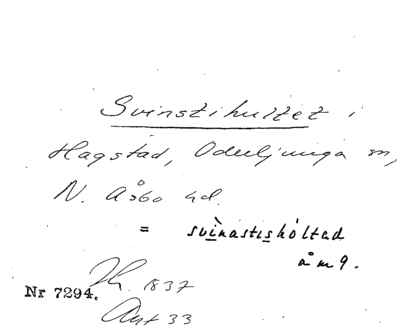 Svinstihultet i
Hagstad, Oderljunga sn,
N. Åsbo hd.
= svìnastishòltad
åm9.
Jh. 1837
Nr 7294.
Ant 33